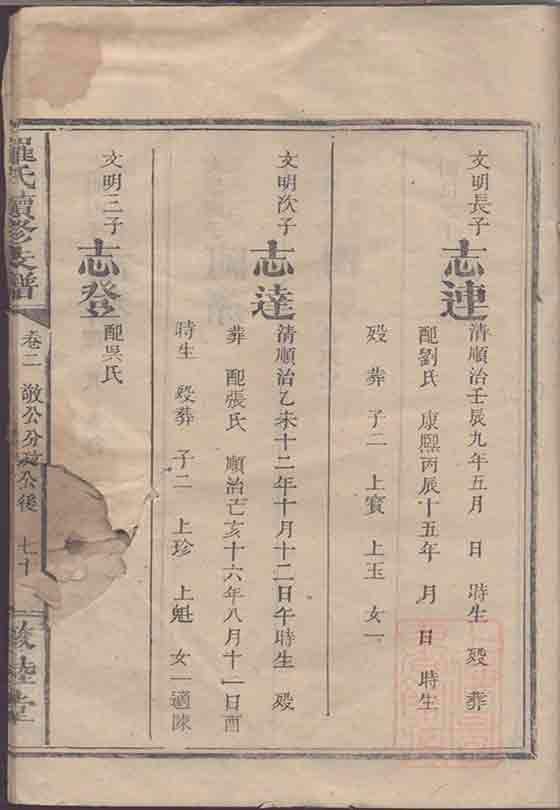 文明長子
志連
清順治壬辰九年五月 日 時生 歿 葬
配劉氏 康熙丙辰十五年 月 日 時生
歿 葬 子二 上賓 上玉 女一
文明次子
志達
清順治乙未十二年十月十二日午時生 歿
葬 配張氏 順治亡亥十六年八月十一日酉
時生 歿葬 子二 上珍 上魁 女一適陳
文明三子
志登
配吳氏
羅氏續修支譜
卷二 敬公分 公後 七十
敦睦堂